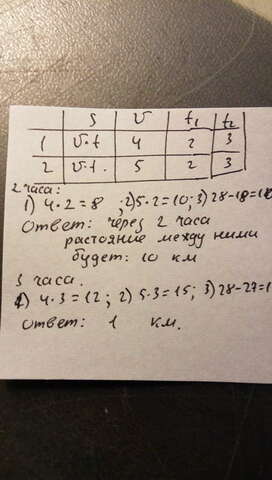 S v t1 t2
1 v·t 4 2 3
2 v·t. 5 2 3
2 часа:
1) 4·2=8 ;2)5·2=10;3)28-18=10
Ответ: через 2 часа
растояние между ними
будет: 10 км
3 часа.
1) 4·3=12; 2) 5·3=15; 3)28-27=1
Ответ: 1 км.